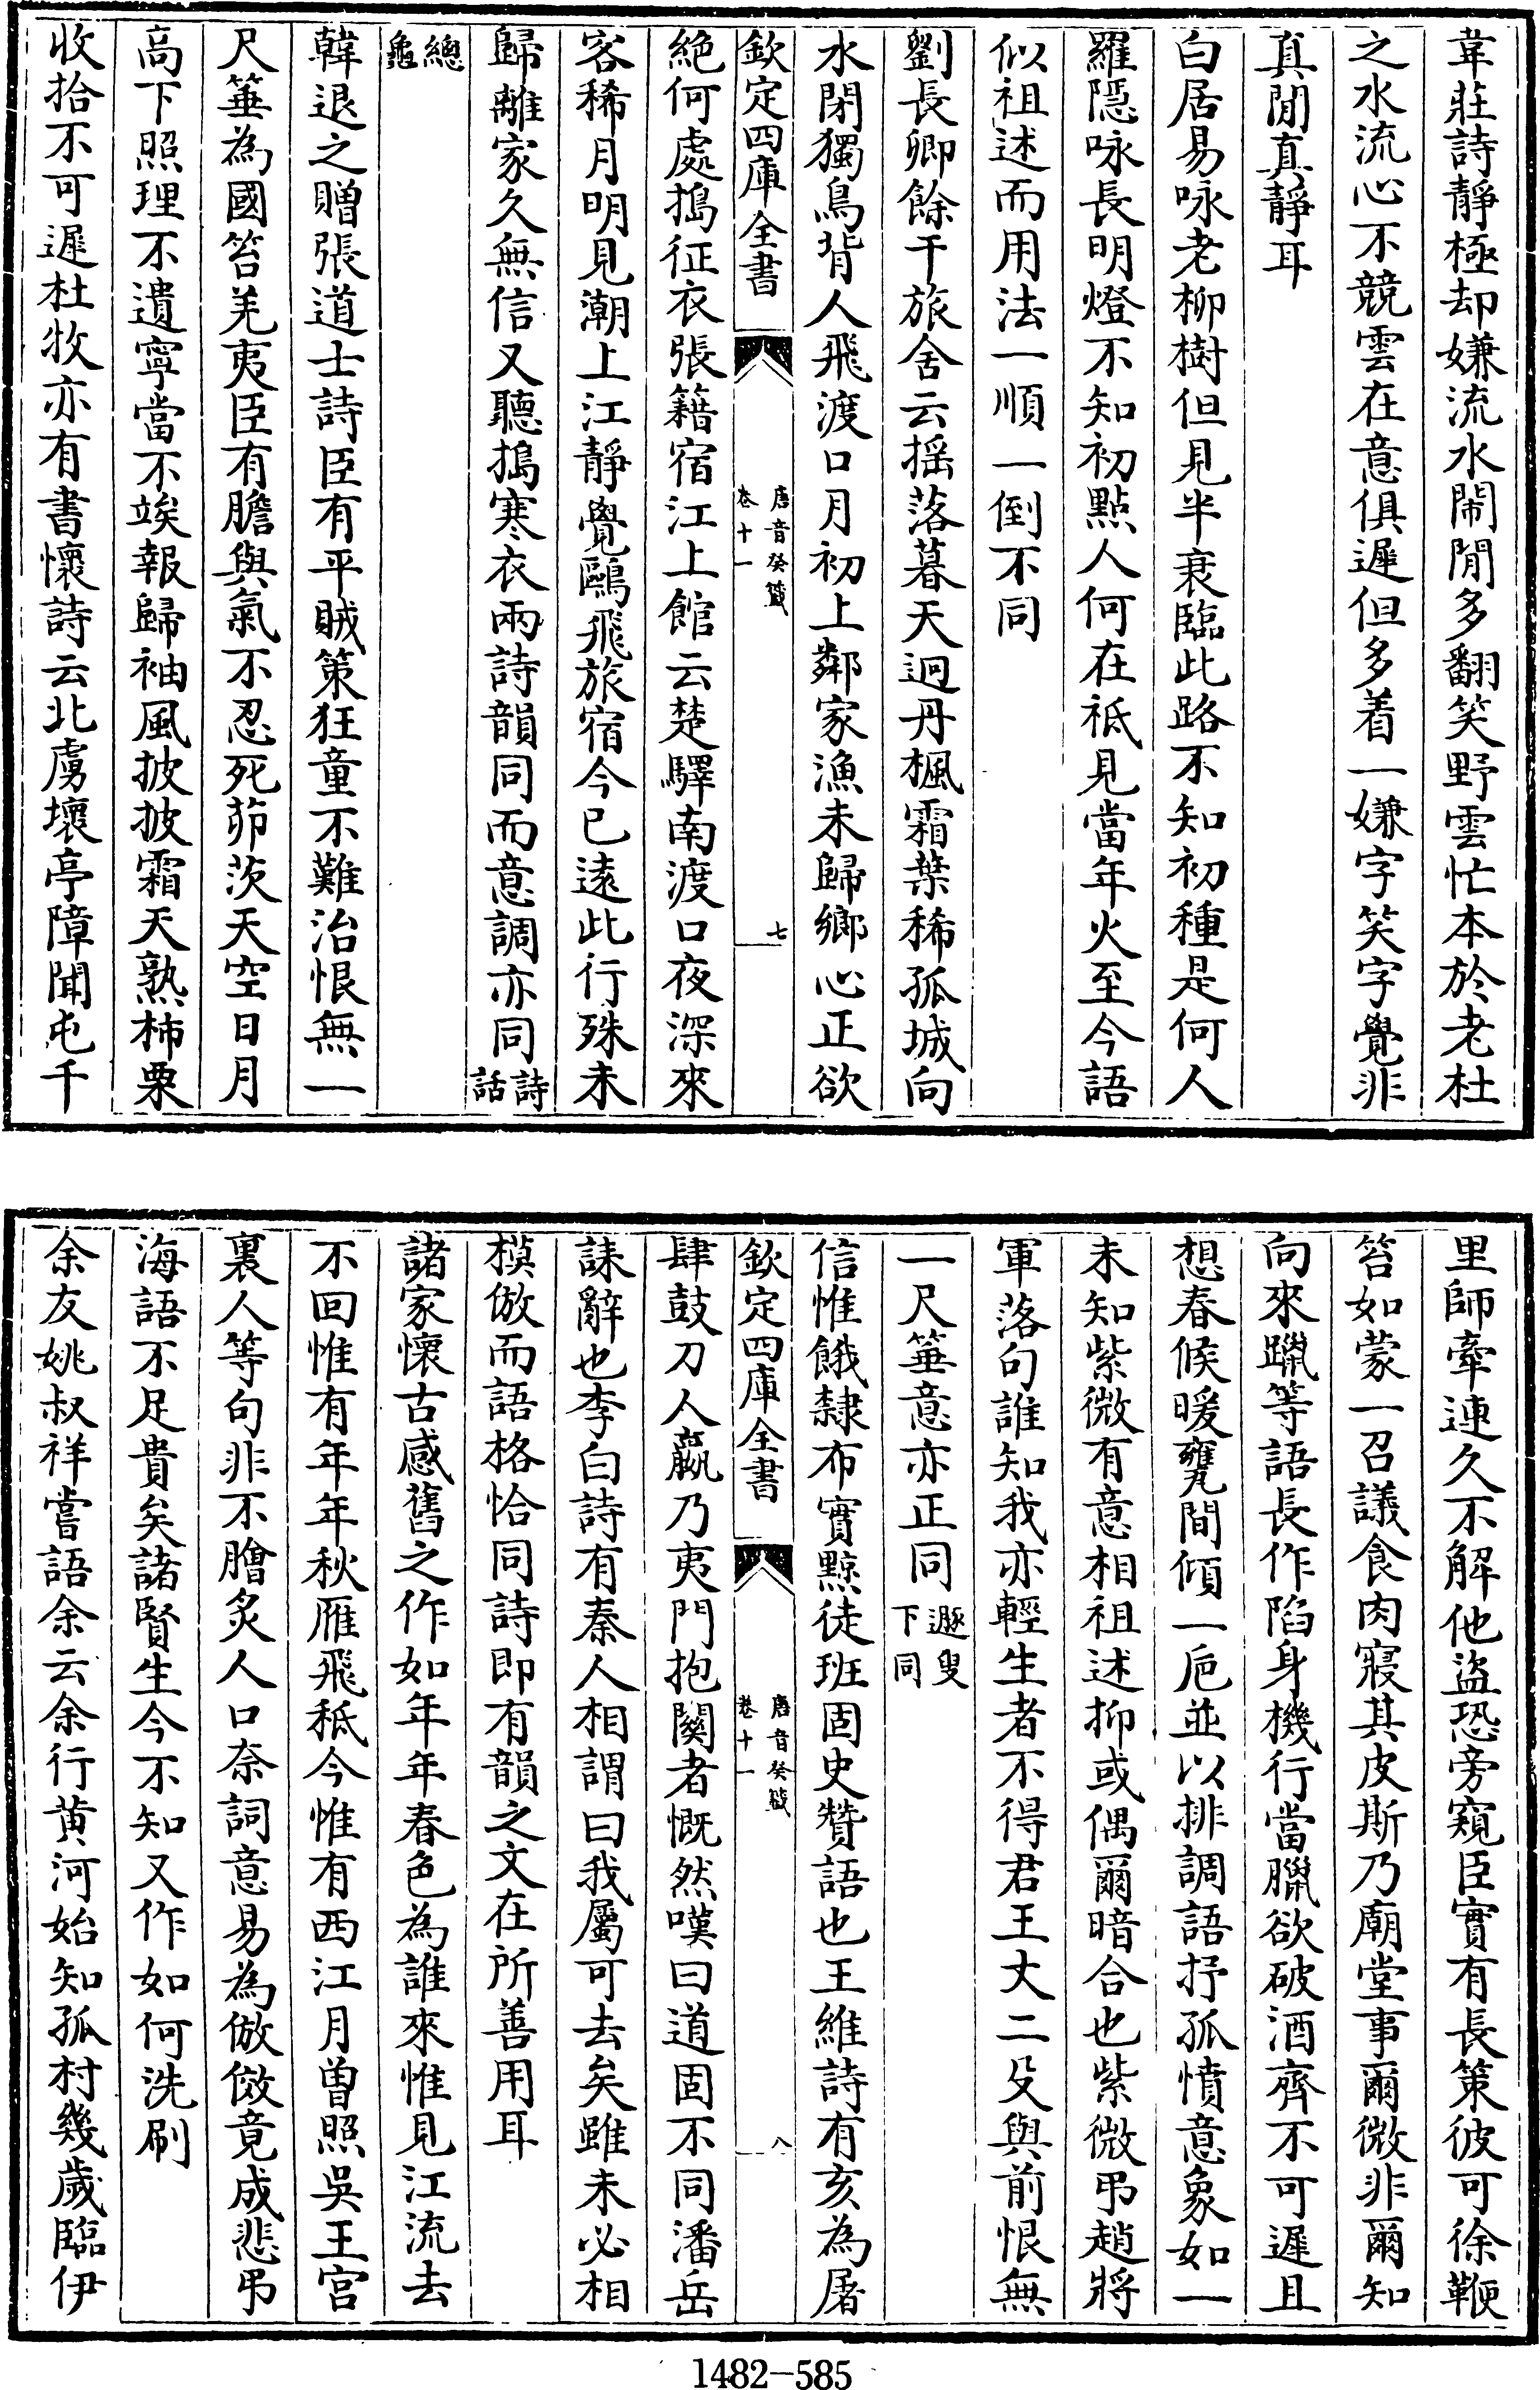 韋莊詩靜極却嫌流水鬧閒多翻笑野雲忙本於老杜
之水流心不競雲在意俱遲但多着一嫌字笑字覺非
真閒真靜耳
白居易咏老柳樹但見半衰臨此路不知初種是何人
羅隱咏長明燈不知初點人何在祗見當年火至今語
似祖述而用法一順一倒不同
劉長卿餘干旅舍云揺落暮天迥丹楓霜葉稀孤城向
水閉獨鳥背人飛渡口月初上鄰家漁未歸鄉心正欲
欽定四庫全書
唐音癸籖
卷十一
七
絶何處搗征衣張籍宿江上館云楚驛南渡口夜深來
客稀月明見潮上江靜覺鷗飛旅宿今已遠此行殊未
歸離家久無信又聽搗寒衣兩詩韻同而意調亦同詩
話
總
龜
韓退之贈張道士詩臣有平賊策狂童不難治恨無一
尺箠為國笞羌夷臣有膽與氣不忍死茆茨天空日月
高下照理不遺寧當不竢報歸袖風披披霜天熟柿栗
收拾不可遲杜牧亦有書懷詩云北虜壞亭障聞屯千
里師牽連久不解他盜恐旁窺臣實有長策彼可徐鞭
笞如蒙一召議食肉寢其皮斯乃廟堂事爾微非爾知
向來躐等語長作陷身機行當臘欲破酒齊不可遲且
想春候暖甕間傾一巵並以排調語抒孤憤意象如一
未知紫微有意相祖述抑或偶爾暗合也紫微弔趙將
軍落句誰知我亦輕生者不得君王丈二殳與前恨無
一尺箠意亦正同遯叟
下同
信惟餓隸布實黥徒班固史贊語也王維詩有亥為屠
欽定四庫全書
唐音癸籖
卷十一
八
肆鼓刀人嬴乃夷門抱關者慨然嘆曰道固不同潘岳
誄辭也李白詩有秦人相謂曰我屬可去矣雖未必相
模倣而語格恰同詩即有韻之文在所善用耳
諸家懷古感舊之作如年年春色為誰來惟見江流去
不回惟有年年秋雁飛秖今惟有西江月曽照吳王宮
裏人等句非不膾炙人口奈詞意易為倣傚竟成悲弔
海語不足貴矣諸賢生今不知又作如何洗刷
余友姚叔祥嘗語余云余行黄河始知孤村幾歲臨伊
1482-585